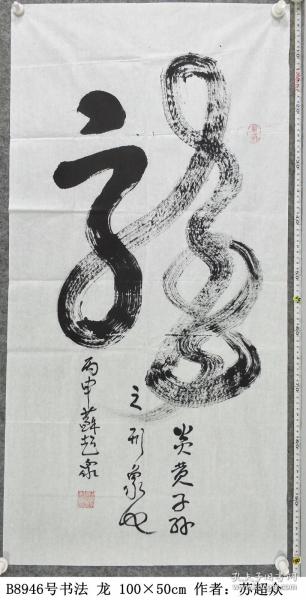 龙
炎黄子孙
之形象也
丙申苏超众
B8946号书法 龙 100×50cm 作者：苏超众